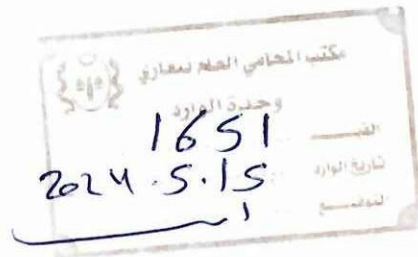 مكتب المحامي العام
وحدة الوارد
القيد 1651
تاريخ الوارد 2024.5.15
التوقيع